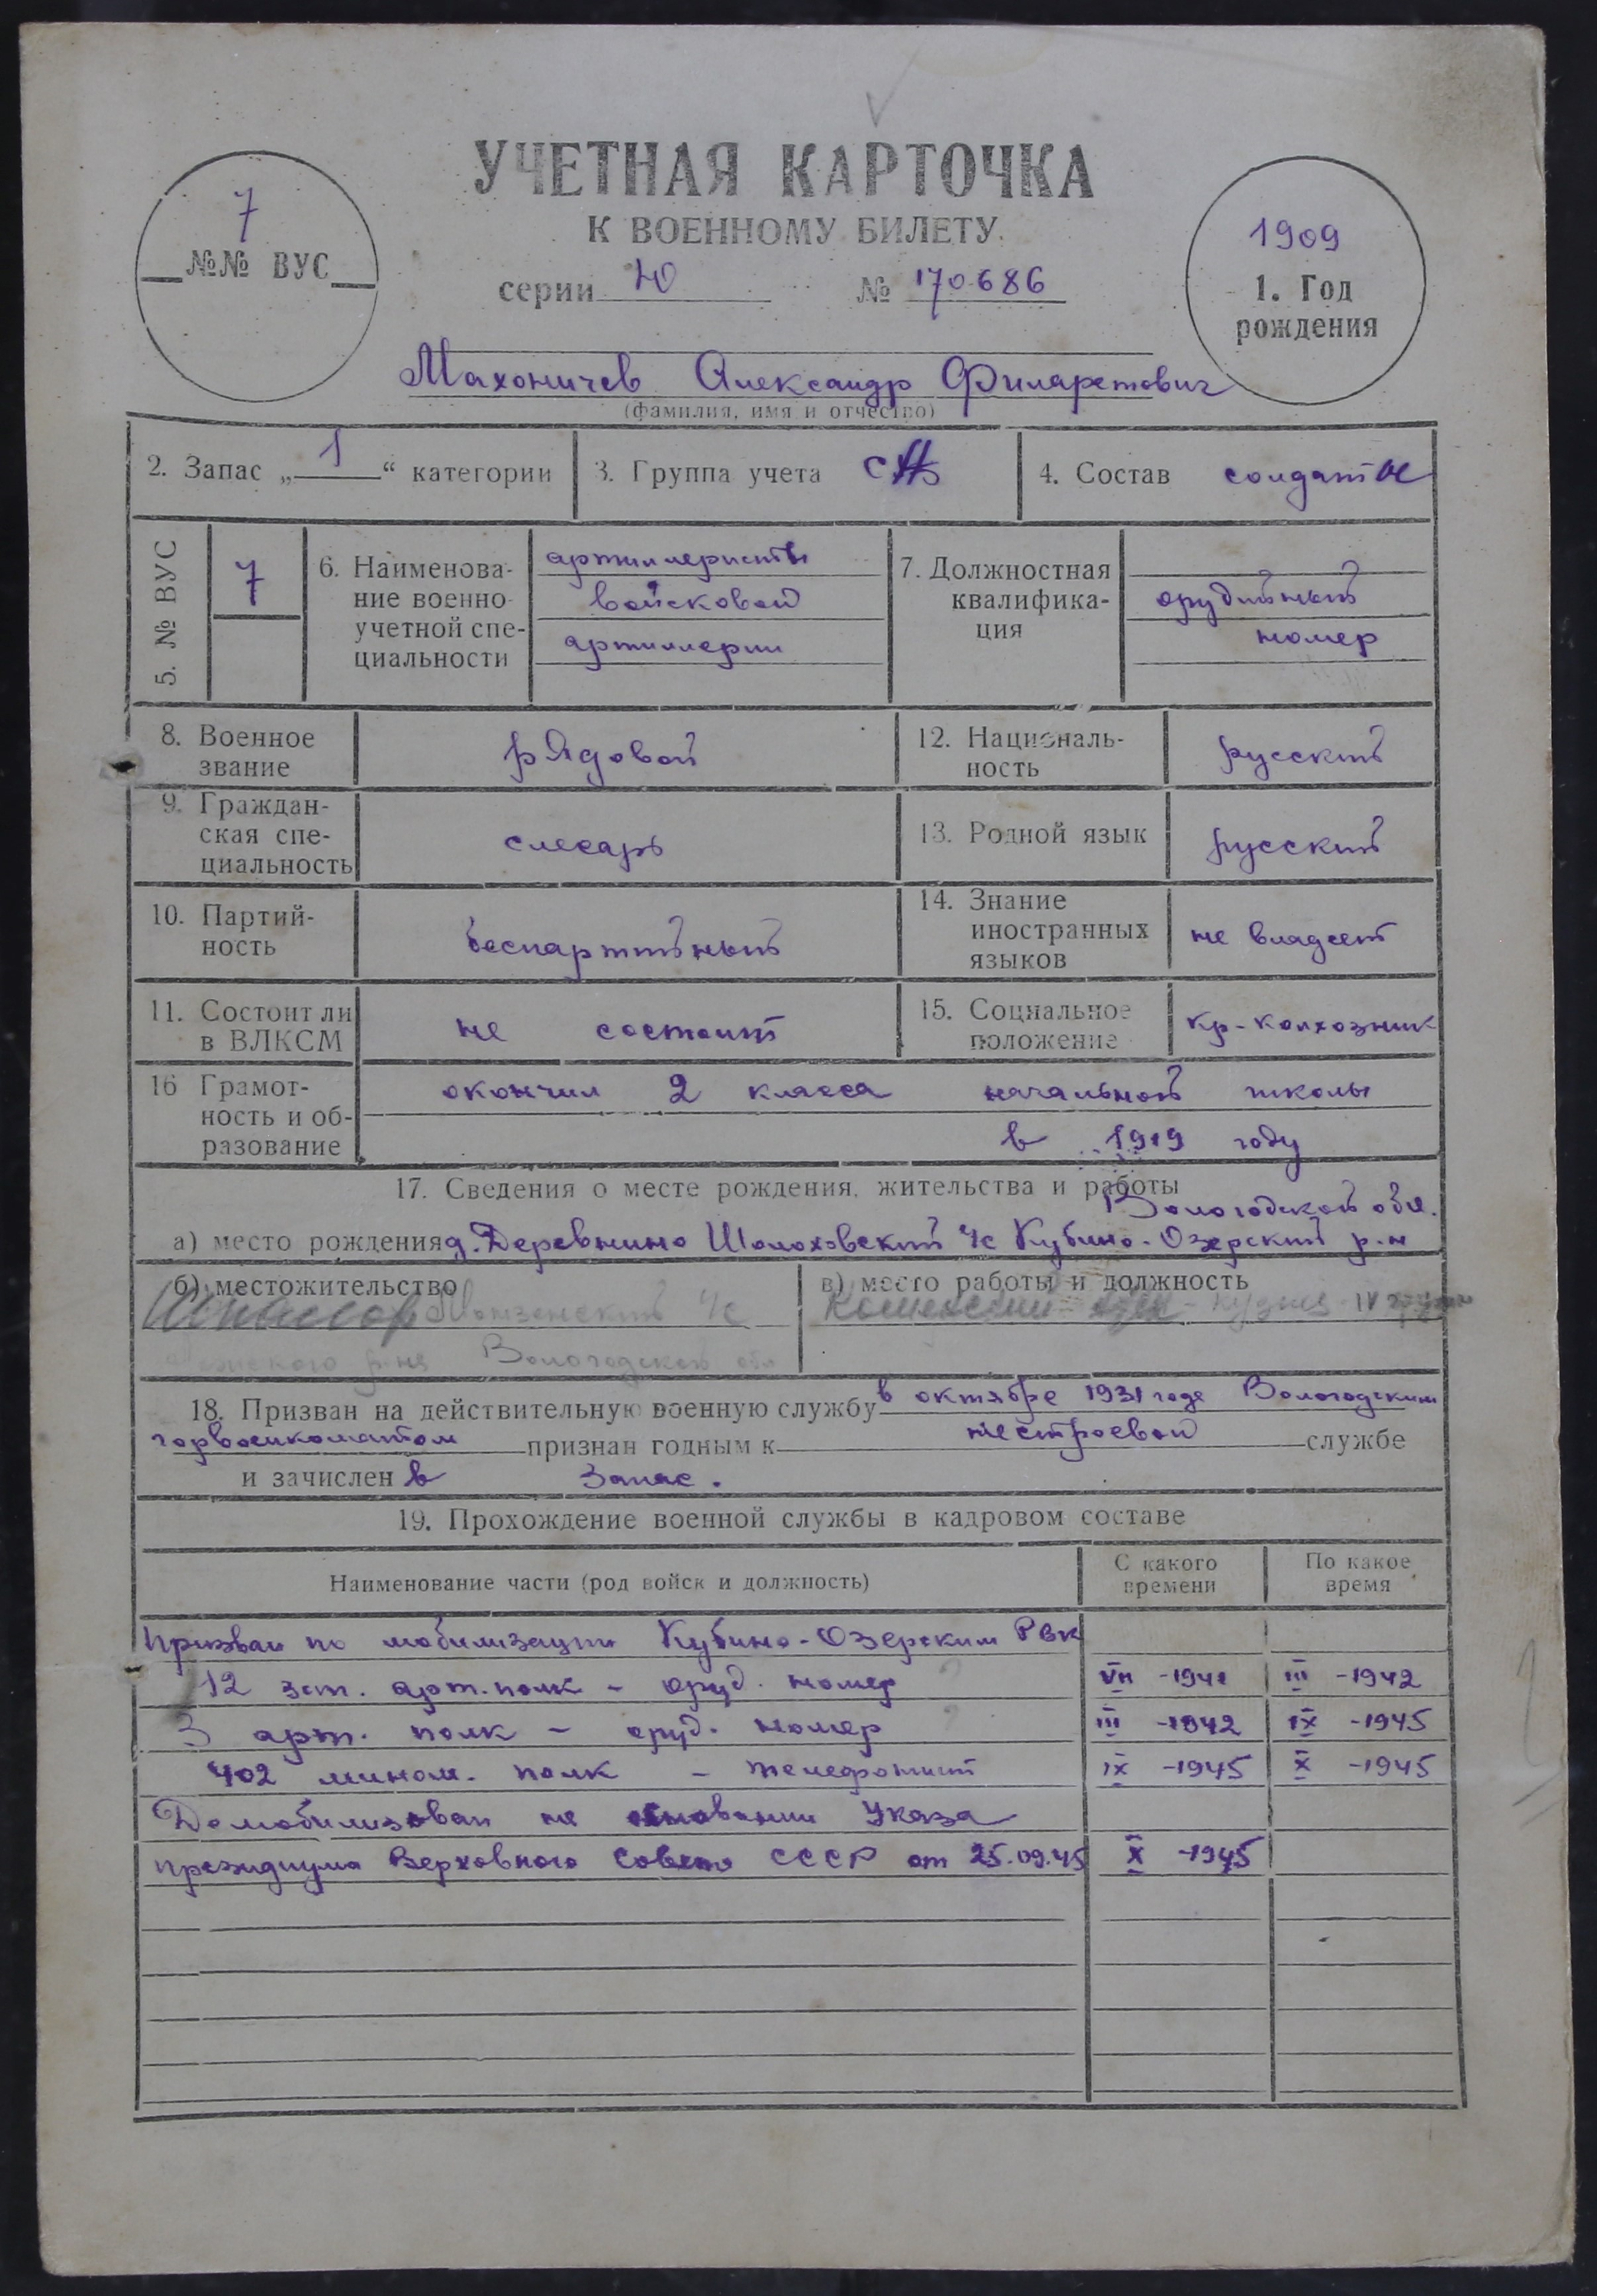 УЧЕТНАЯ КАРТОЧКА
К ВОЕННОМУ БИЛЕТУ.
7
№№ ВУС
серии Ю № 170686
1909
1. Год
рождения
Махоничев Александр Филаретович
(фамилия, имя и отчество)
2. Запас „1“ категории
3. Группа учета СА
4. Состав солдаты
5. № ВУС
7
6. Наименова-
ние военно-
учетной спе-
циальности
артиллеристы
войсковой
артиллерии
7. Должностная
квалифика-
ция
орудийный
номер
8. Военное
звание
рядовой
12. Националь-
ность
русский
9. Граждан-
ская спе-
циальность
слесарь
13. Родной язык
русский
10. Партий-
ность
беспартийный
14. Знание
иностранных
языков
не владеет
11. Состоит ли
в ВЛКСМ
не состоит
15. Социальное
положение
кр-колхозник
16 Грамот-
ность и об-
разование
окончил 2 класса начальной школы
в 1919 году
17. Сведения о месте рождения, жительства и работы
Вологодской обл.
а) место рождения д. Деревнино Шолоховский с/с Кубино-Озерский р-н
б) местожительство
с/с
р-на Вологодской обл
в) место работы и должность
18. Призван на действительную военную службу в октябре 1931 года Вологодским
горвоенкоматом признан годным к нестроевой службе
и зачислен в запас.
19. Прохождение военной службы в кадровом составе
Наименование части (род войск и должность)
С какого
времени
По какое
время
Призван по мобилизации Кубино-Озерским РВК
12 зап. арт. полк - оруд. номер VII -1941 III -1942
3 арт. полк - оруд. номер III -1942 IX -1945
402 мином. полк - телефонист IX -1945 X -1945
Демобилизован на основании Указа
президиума Верховного Совета СССР от 25.09.45 X -1945